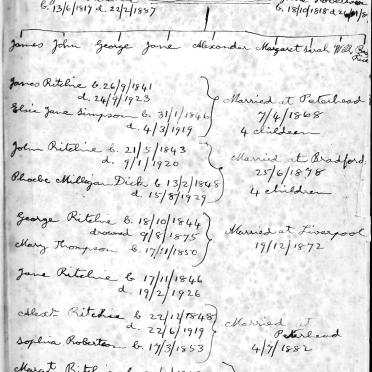 b. 13/6/1817 d. 22/2/1887
b. 18/10/1818 d.
James John George Jane Alexander Margaret Sarah Will
James Ritchie b. 26/9/1841
d. 24/9/1923
Elsie Jane Simpson b. 31/1/1846
d. 4/3/1919
Married at Peterhead
7/4/1868
4 children
John Ritchie b. 21/5/1843
d. 9/1/1920
Phoebe Milligan Dick b. 13/2/1848
d. 15/8/1929
Married at Bradford
25/6/1878
4 children
George Ritchie b. 18/10/1844
drowned 9/8/1875
Mary Thompson b. 17/11/1850
Married at Liverpool
19/12/1872
Jane Ritchie b. 17/11/1846
d. 19/2/1926
Alext Ritchie b. 22/12/1848
d. 22/6/1919
Sophia Robertson b. 17/3/1853
Married at
Peterhead
4/7/1882